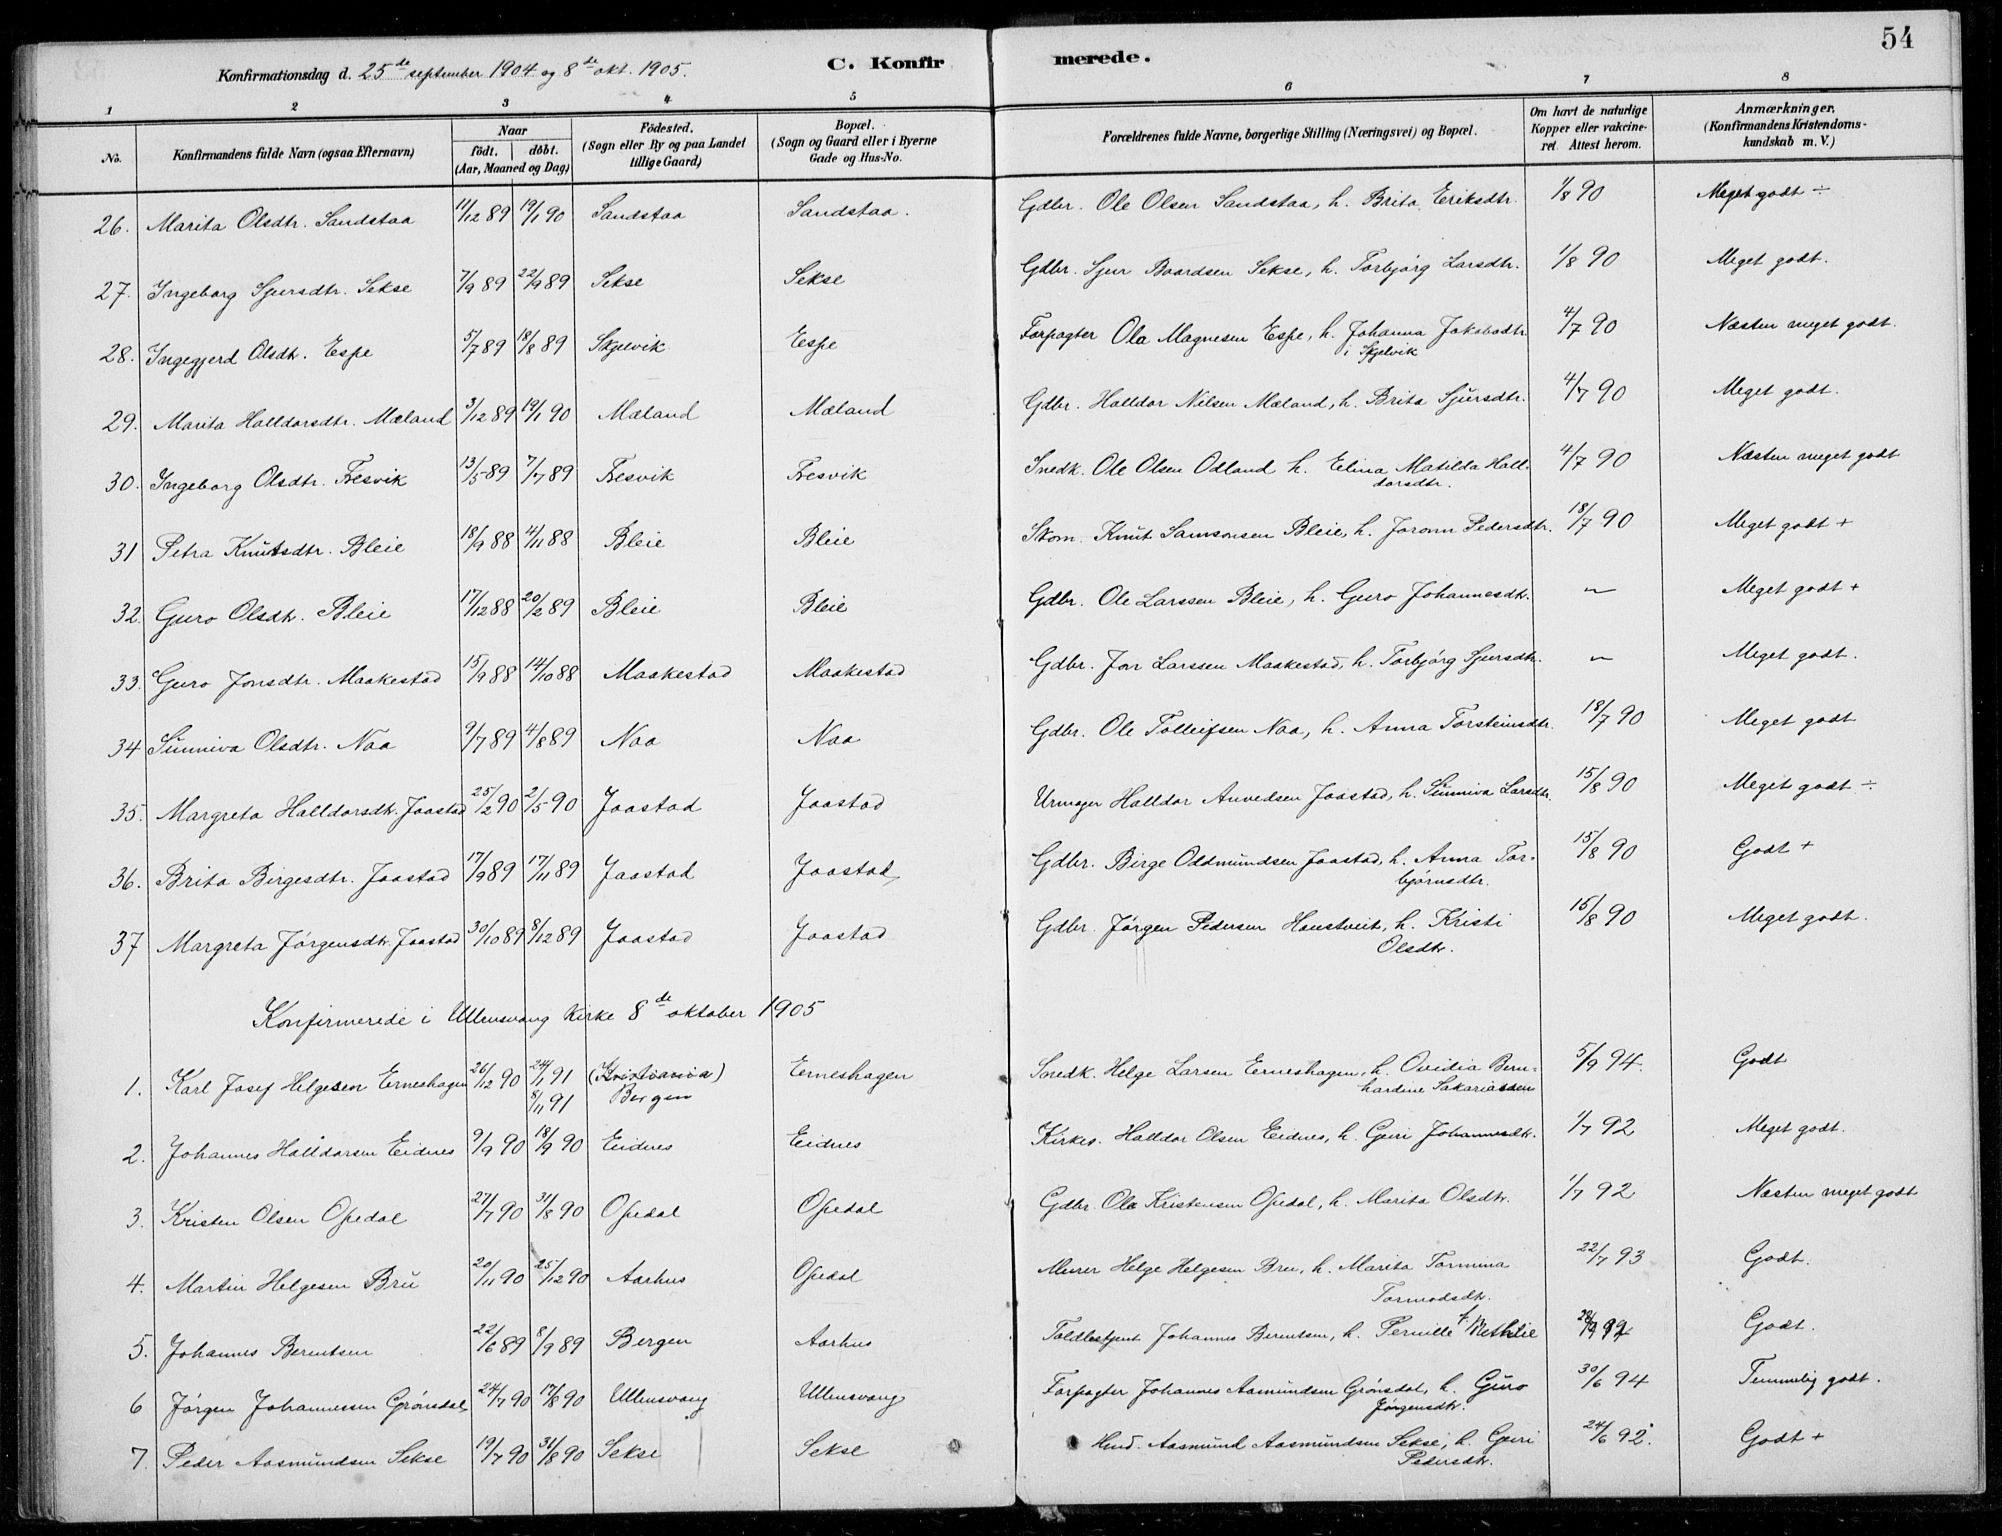 54
Konfirmationsdag d. 25de september 1904 og 8de okt. 1905.
C. Konfirmerede.
1 2 3 4 5 6 7 8
No. Konfirmandens fulde Navn (ogsaa Efternavn) Naar født. døbt. (Aar, Maaned og Dag) Fødested. (Sogn eller By og paa Landet tillige Gaard) Bopæl. (Sogn og Gaard eller i Byerne Gade og Hus-No. Forældrenes fulde Navne, borgerlige Stilling (Næringsvei) og Bopæl. Om havt de naturlige Kopper eller vakcineret. Attest herom. Anmærkninger. (Konfirmandens Kristendomskundskab m. V.)
26. Marita Olsdtr. Sandstaa 11/12 89 19/1 90 Sandstaa Sandstaa. Gdbr. Ole Olsen Sandstaa, h. Brita Eriksdtr. 1/8 90 Meget godt ÷
27. Ingeborg Sjursdtr. Sekse 7/9 89 22/9 89 Sekse Sekse Gdbr. Sjur Baardsen Sekse, h. Torbjørg Larsdtr. 1/8 90 Meget godt.
28. Ingegjerd Olsdtr. Espe 5/7 89 18/8 89 Skjelvik Espe Forpagter Ola Magnesen Espe, h. Johanna Jakobsdtr. i Skjelvik 4/7 90 Næsten meget godt.
29. Marita Halldorsdtr. Mæland 3/12 89 19/1 90 Mæland Mæland Gdbr. Halldor Nilsen Mæland, h. Brita Sjursdtr. 4/7 90 Meget godt.
30. Ingeborg Olsdtr. Tresvik 13/5 89 7/7 89 Tresvik Tresvik Snedk. Ole Olsen Odland h. Elina Matilda Halldorsdtr. 4/7 90 Næsten meget godt
31 Petra Knutsdtr. Bleie 18/9 88 4/11 88 Bleie Bleie Skom. Knut Samsonsen Bleie, h. Joronn Pedersdtr. 18/7 90 Meget godt +
32. Guro Olsdtr. Bleie 17/12 88 20/2 89 Bleie Bleie Gdbr. Ole Larssen Bleie, h. Guro Johannesdtr. — Meget godt +
33. Guro Jonsdtr. Maakestad 15/9 88 14/10 88 Maakestad Maakestad Gdbr. Jon Larssen Maakestad, h. Torbjørg Sjursdtr. — Meget godt.
34 Sunniva Olsdtr. Naa 9/7 89 4/8 89 Naa Naa Gdbr. Ole Tolleifsen Naa, h. Anna Torsteinsdtr. 18/7 90 Meget godt
35. Margreta Halldorsdtr. Jaastad 25/2 90 2/5 90 Jaastad Jaastad Urmager Halldor Anvedsen Jaastad, h. Sunniva Larsdtr. 15/8 90 Meget godt ÷
36. Brita Birgesdtr. Jaastad 17/9 89 17/11 89 Jaastad Jaastad Gdbr. Birge Oddmundsen Jaastad, h. Anna Torbjørnsdtr. 15/8 90 Godt +
37 Margreta Jørgensdtr. Jaastad 30/10 89 8/12 89 Jaastad Jaastad Gdbr. Jørgen Pedersen Haustveit, h. Kristi Olsdtr. 15/8 90 Meget godt.
Konfirmerede i Ullensvang Kirke 8de oktober 1905
1. Karl Josef Helgesen Erneshagen 26/12 90 24/1 91 8/11 91 (Kristiania) Bergen Erneshagen Snedk. Helge Larsen Erneshagen, h. Ovidia Bernhardine Sakariassen 5/9 94. Godt
2. Johannes Halldorsen Eidnes 9/9 90 18/9 90 Eidnes Eidnes Kirkes. Halldor Olsen Eidnes, h. Guri Johannesdtr. 1/7 92 Meget godt.
3. Kristen Olsen Opedal 27/7 90 31/8 90 Opedal Opedal Gdbr. Ola Kristensen Opedal, h. Marita Olsdtr. 1/7 92 Næsten meget godt
4. Martin Helgesen Bru 20/11 90 25/12 90 Aarhus Opedal Murer Helge Helgesen Bru, h. Marita Tormina Tormodsdtr. 22/7 93 Godt.
5. Johannes Berentsen 22/6 89 8/9 89 Bergen Aarhus Toldbetjent Johannes Berentsen, h. Pernille Methilie Godt.
6 Jørgen Johannessen Grønsdal 24/7 90 17/8 90 Ullensvang Ullensvang Forpagter Johannes Aamundsen Grønsdal, h. Guro Jørgensdtr. 30/6 94 Temmelig godt.
7. Peder Aasmundsen Sekse 19/7 90 31/8 90 Sekse Sekse Hmd. Aasmund Aasmundsen Sekse, h. Guri Pedersdtr. 24/6 92. Godt +